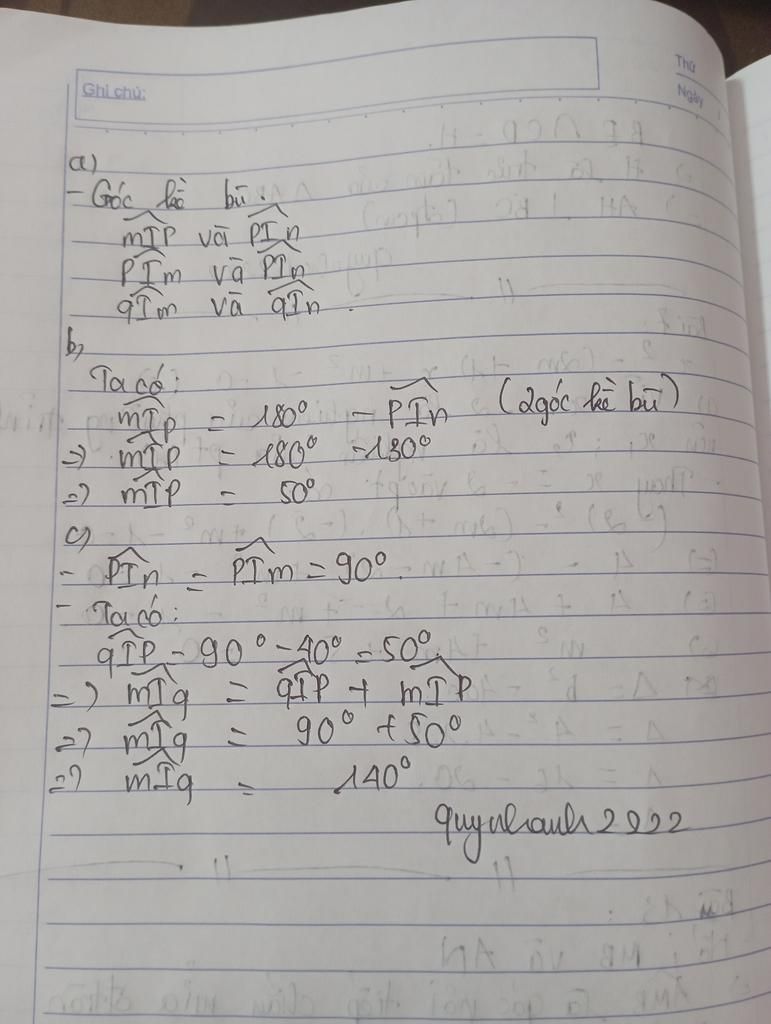 Thứ
Ghi chú:
Ngày
a)
- Góc kề bù:
mIP và PIn
PIm và PIn
qIm và qIn.
b,
Ta có:
mIp = 180° - PIn (2góc kề bù)
=> mIp = 180° - 130°
=> mIp = 50°
c)
- PIn = PIm = 90°.
- Ta có:
qIP - 90° - 40° = 50°.
=> mIq = qIP + mIP
=> mIq = 90° + 50°
=> mIq = 140°
quynhanh2222